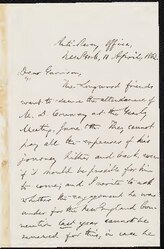 Anti-Slavery Office,
New York, 11 April, 1862.
Dear Garrison,
The Longwood friends
want to secure the attendance of
M. D. Conway at the Yearly
Meeting, June the They cannot
pay all the expenses of his
journey hither and back, even
if it should be possible for him
to come, and I write to ask
whether the engagement he was
under for the New England Con-
vention last year cannot be
renewed for this, in case he